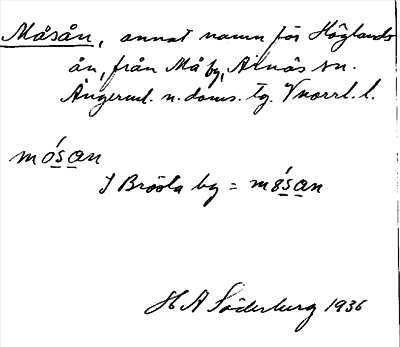 Måsån, annat namn för Höglands
ån, från Må by, Arnäs sn.
Ångerml. n. doms. tg. Vnorrl. l.
mósan
I Brösta by = mósan
H A Söderburg 1936